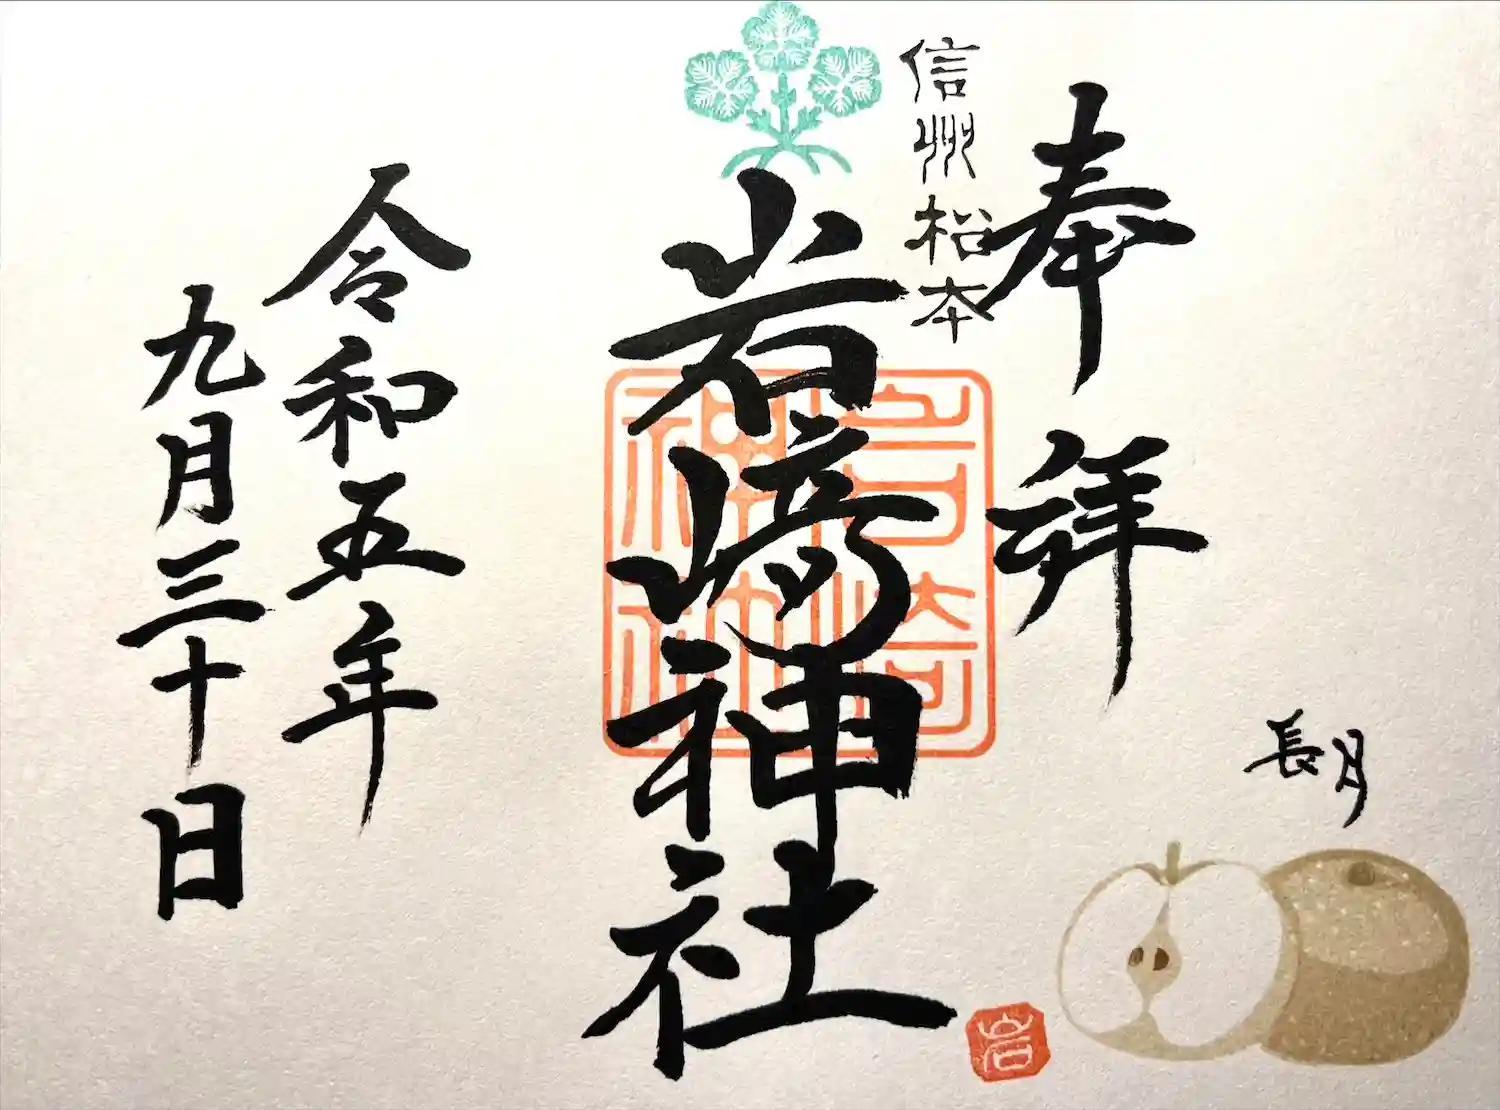 奉拝
信州松本
岩﨑神社
岩崎
神社
令和五年
九月三十日
長月
岩